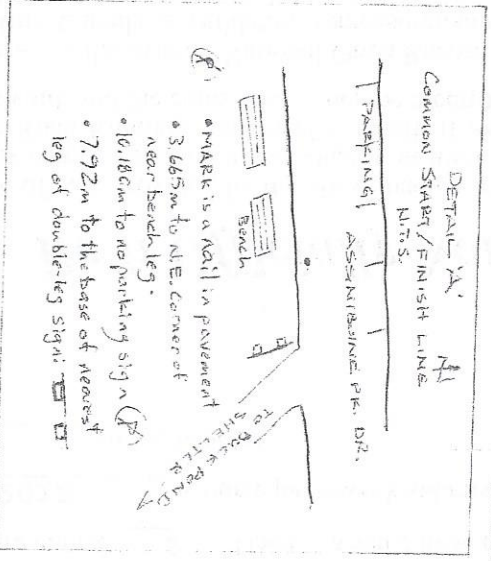 DETAIL 'A'
COMMON START/FINISH LINE
N.T.S.
PARKING
ASSNIBOINE PK. DR.
Bench
TO DUCK POND
SHELTER
(P)
• MARK is a nail in pavement
• 3.665m to N.E. Corner of
near bench leg.
• 10.186m to no parking sign (P)
• 7.92m to the base of nearest
leg of double-leg sign: